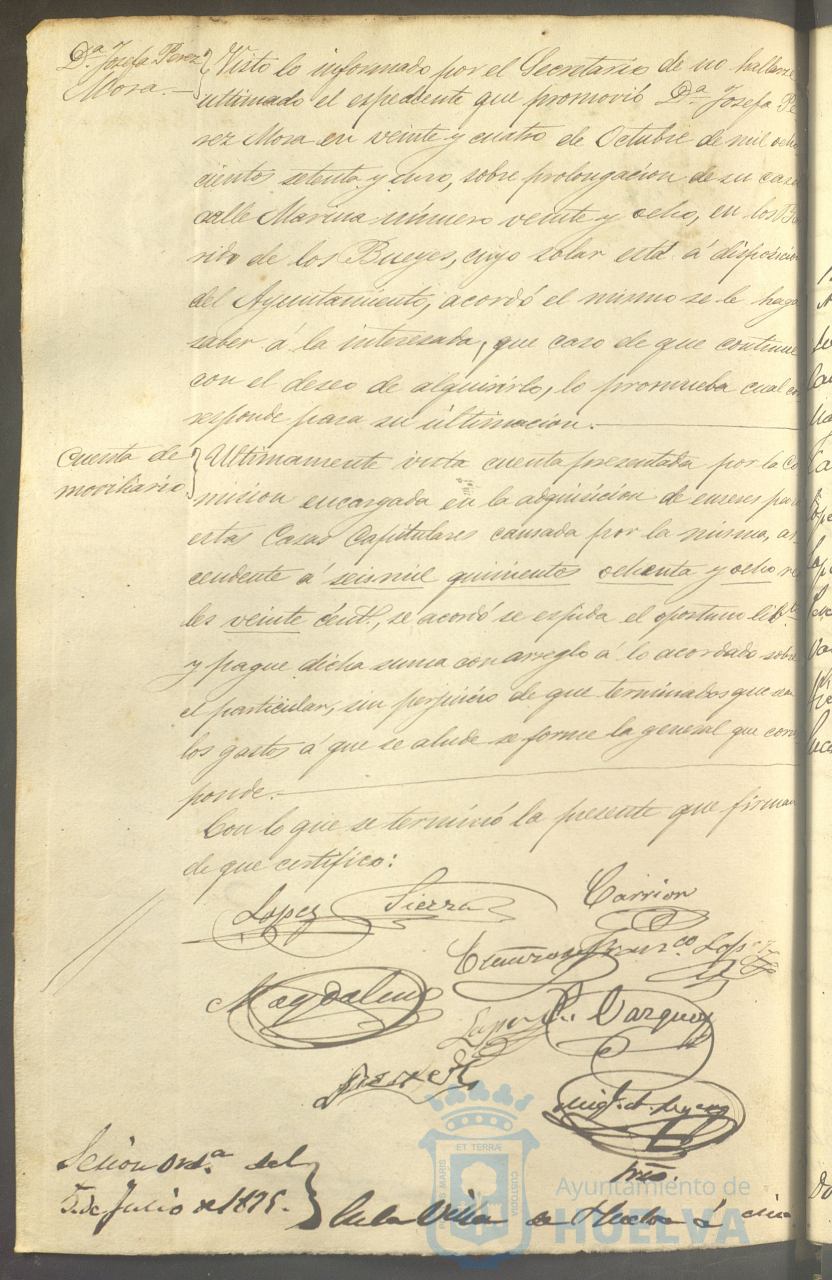 Dª Josefa Perez
Mora.—
Visto lo informado por el Secretario de no hallarse
ultimado el espediente que promovió Dª Josefa Pe
rez Mora en veinte y cuatro de Octubre de mil ocho
cientos setenta y uno, sobre prolongacion de su casa
calle Marina número veinte y ocho, en los
rido de los Bueyes, cuyo solar está á disposicion
del Ayuntamiento, acordó el mismo se le haga
saber á la interesada, que caso de que continue
con el deseo de alquirirlo, lo promueba cual cor
responde para su ultimacion.—
Cuenta de
moviliario
Ultimamente vista cuenta presentada por la Co
mision encargada en la adquisicion de enseres para
estas Casas Capitulares causada por la misma, as
cendente á seis mil quinientos ochenta y ocho re
les veinte cént.s, se acordó se espida el oportuno lib.to
y pague dicha suma con arreglo á lo acordado sobre
el particular, sin perjuicio de que terminados que sean
los gastos á que se alude se forme la general que corres
ponde.—
Con lo que se terminó la presente que firman
de que certifico:
Lopez Sierra Carrion
Franco Lopez
Magdalena
Lopez P. Vazquez
Srio.
Sesion Ord.ª del
5 de Julio de 1875.
En la Villa de Huelva á cin
ET TERRÆ
MARIS
CUSTODIA
Ayuntamiento de
HUELVA